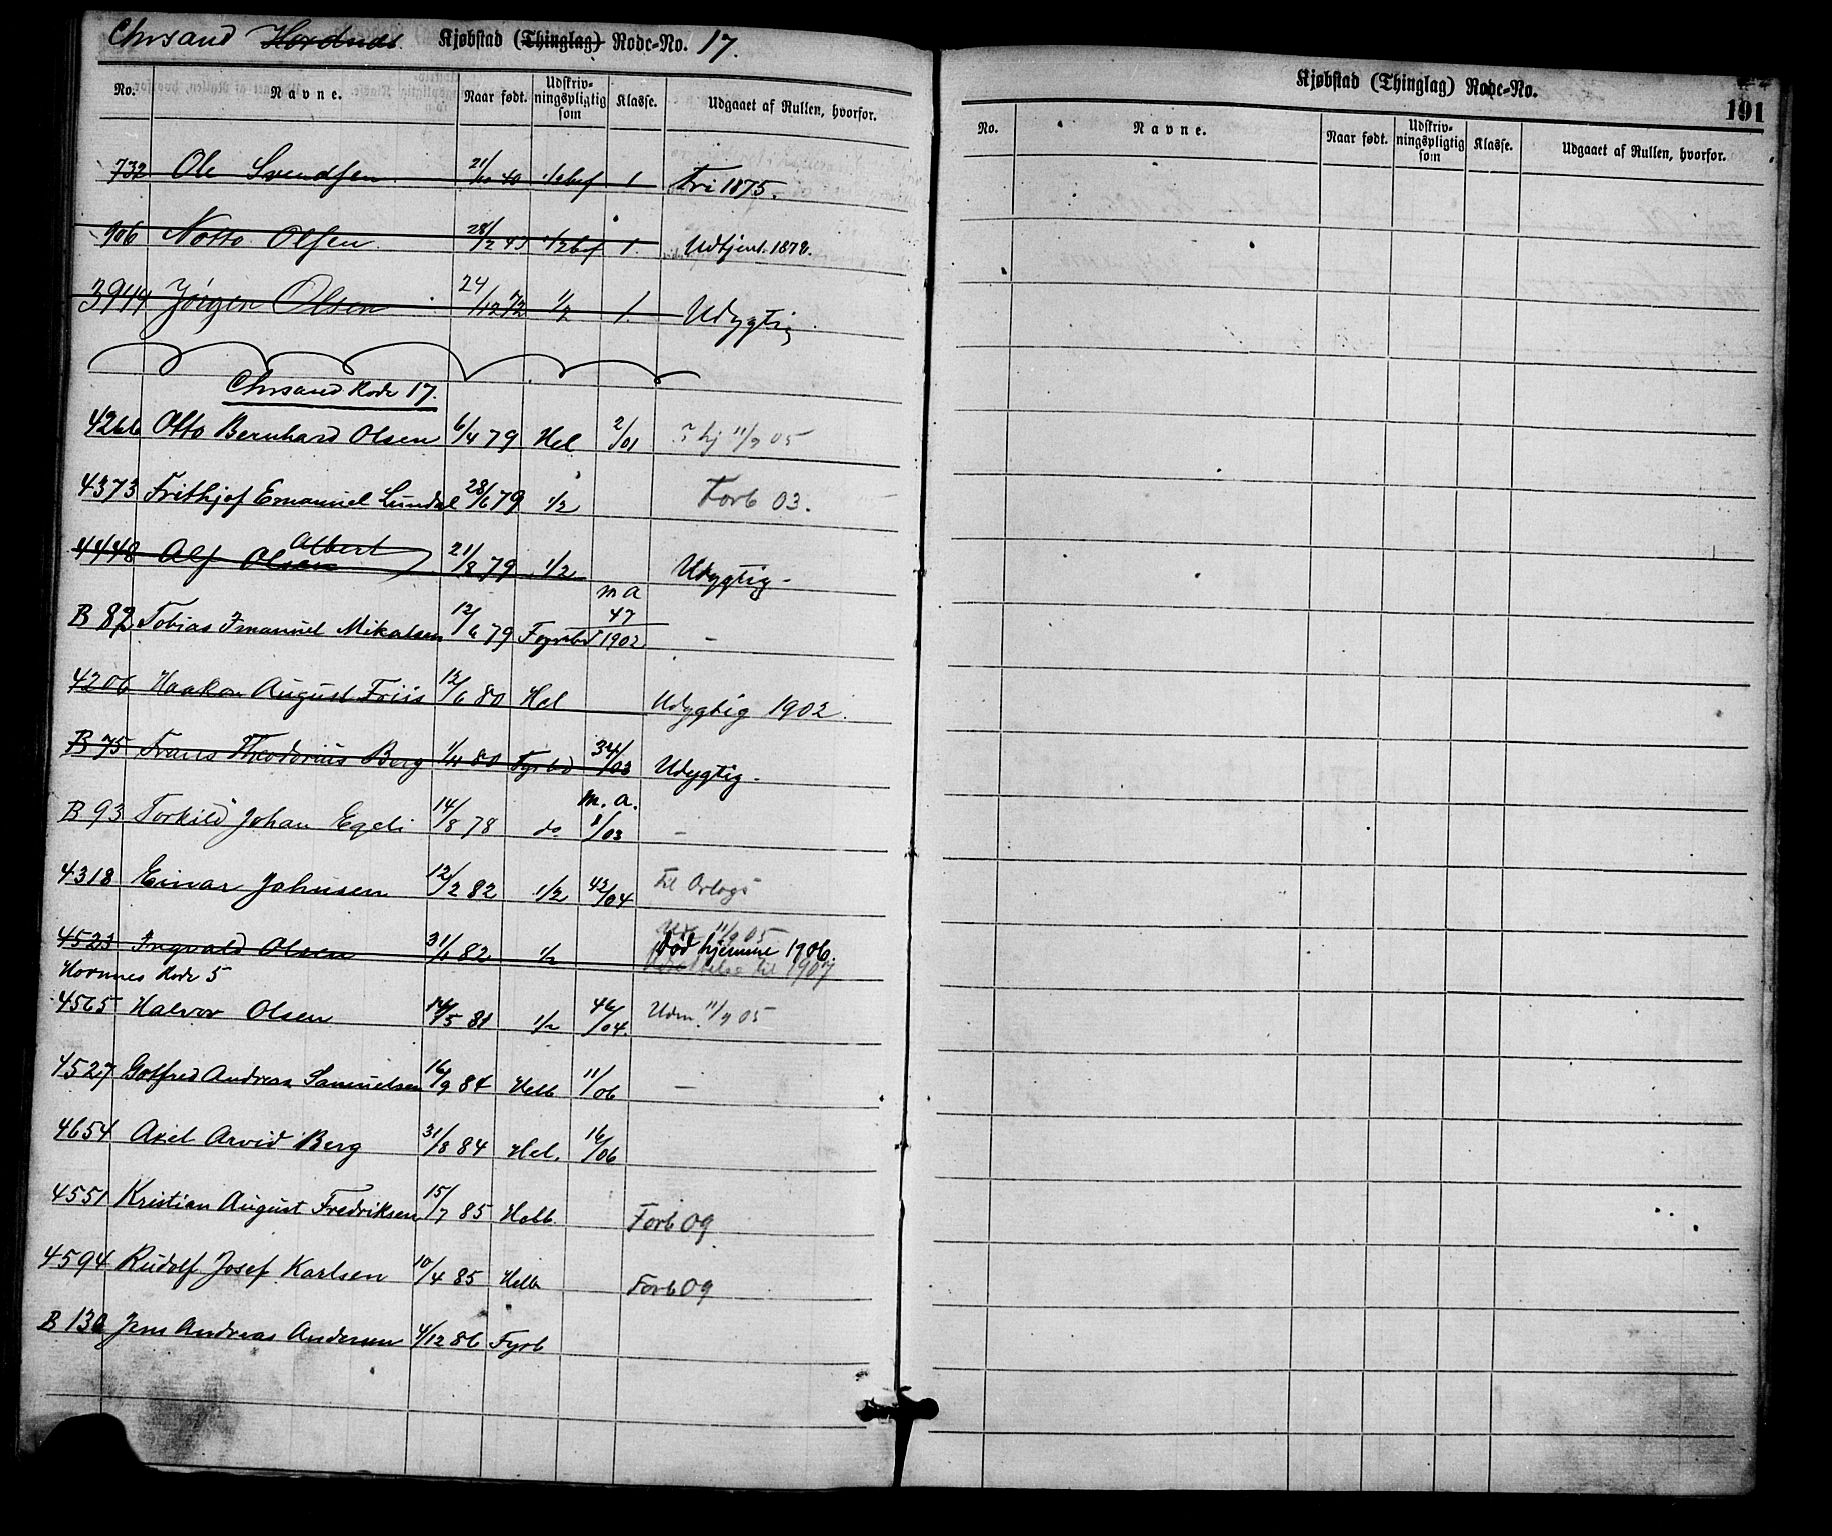 Chrsand Hordnæs Kjøbstad (Thinglag) Rode-No. 17.
No. Navne. Naar født. Udskrivningspligtig som Klasse. Udgaaet af Rullen, hvorfor.
732 Ole Svendsen 21/10 40 1/2bef 1. Fri 1875.
906 Notto Olsen 28/2 43 1/2bef 1. Udtjent. 1878.
3944 Jørgen Olsen 24/12 72 1/2 1. Udygtig
Chrsand Rode 17.
4266 Otto Bernhard Olsen 6/4 79 Hel 2/01 hj 11/9 05
4373 Frithjof Emanuel Lundal 28/6 79 1/2 Forb 03.
4448 Alf Albert Olsen 21/8 79 1/2 Udygtig -
B 82 Tobias Imanuel Mikalsen 12/6 79 Fyrbd m a 47/1902 -
4206 Haakon August Friis 12/6 80 Hel Udygtig 1902.
B 75 Frans Theodorius Berg 1/4 80 Fyrbd 34/03 Udygtig -
B 93 Torkild Johan Egeli 14/8 78 do m. a. 8/03 -
4318 Einar Johnsen 12/2 82 1/2 42/04 til Orlogs
4523 Ingvald Olsen 31/1 82 1/2 11/9 05
død hjemme 1906.
til 1907
Hornnes Rode 5
4565 Halvor Olsen 14/5 81 1/2 46/04. Udm. 11/9 05
4527 Gotfred Andreas Samuelsen 16/9 84 Helb 11/06 -
4654 Axel Arvid Berg 31/8 84 Hel. 16/06
4551 Kristian August Fredriksen 15/7 85 Helb Forb 09
4594 Rudolf Josef Karlsen 10/4 85 Helb Forb 09
B 130 Jens Andreas Andersen 4/12 86 Fyrb
Kjøbstad (Thinglag) Rode-No.
191
No. Navne. Naar født. Udskrivningspligtig som Klasse. Udgaaet af Rullen, hvorfor.